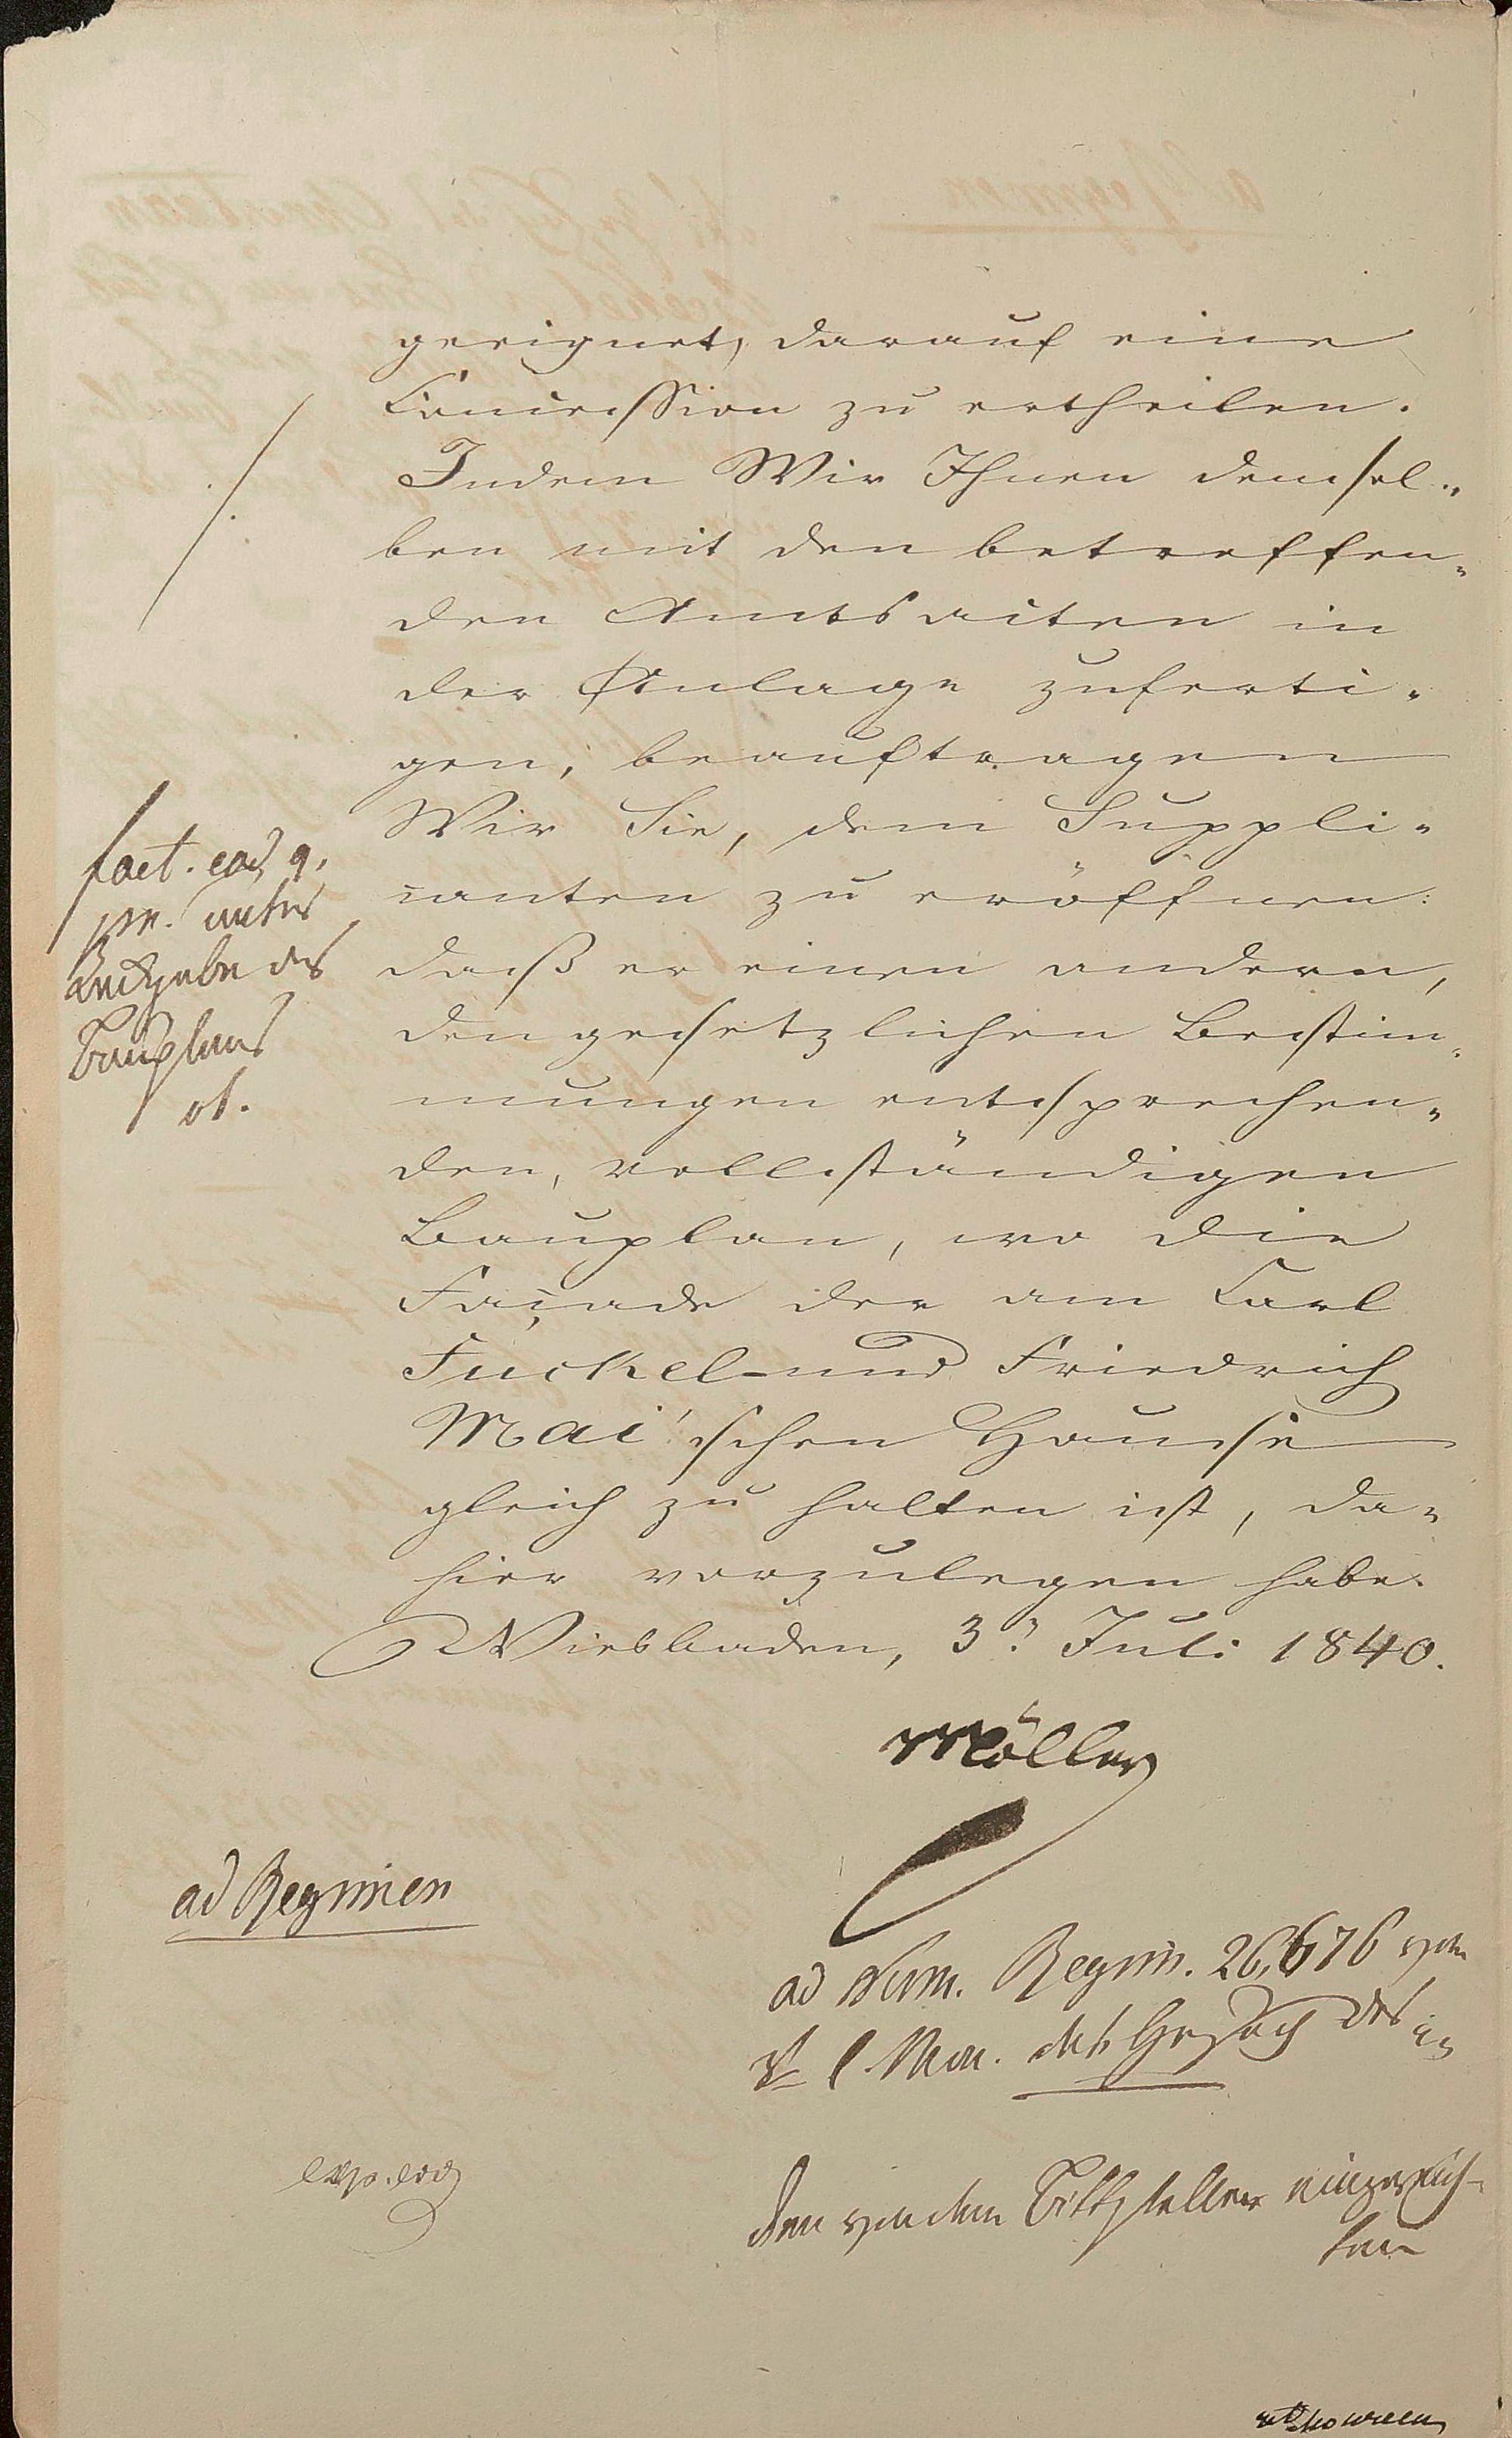 geeignet, darauf eine
Concession zu ertheilen.
Indem Wir Ihnen densel-
ben mit den betreffen-
den Amtsacten in
der Anlage zuferti-
gen, beauftragen
Wir Sie, dem Suppli-
canten zu eröffnen:
daß er einen andern,
den gesetzlichen Bestim-
mungen entsprechen-
den, vollständigen
Bauplan, wo die
Façade der am Carl
Fuckel- und Friedrich
Mai'schen Hause
gleich zu halten ist, da-
hier vorzulegen habe.
Wiesbaden, 3. Juli 1840.
Möller
fact. eod
unter
Rückgabe des
Bauplans
ad Regimen
ad Num. Regim. 26,676 vom
l. Mon. das Gesuch des
exp. eod
den von dem Bittsteller eingereich-
ten